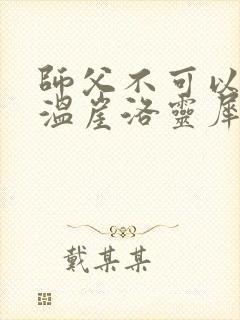 師父不可以
溫崖洛靈犀
戴某某